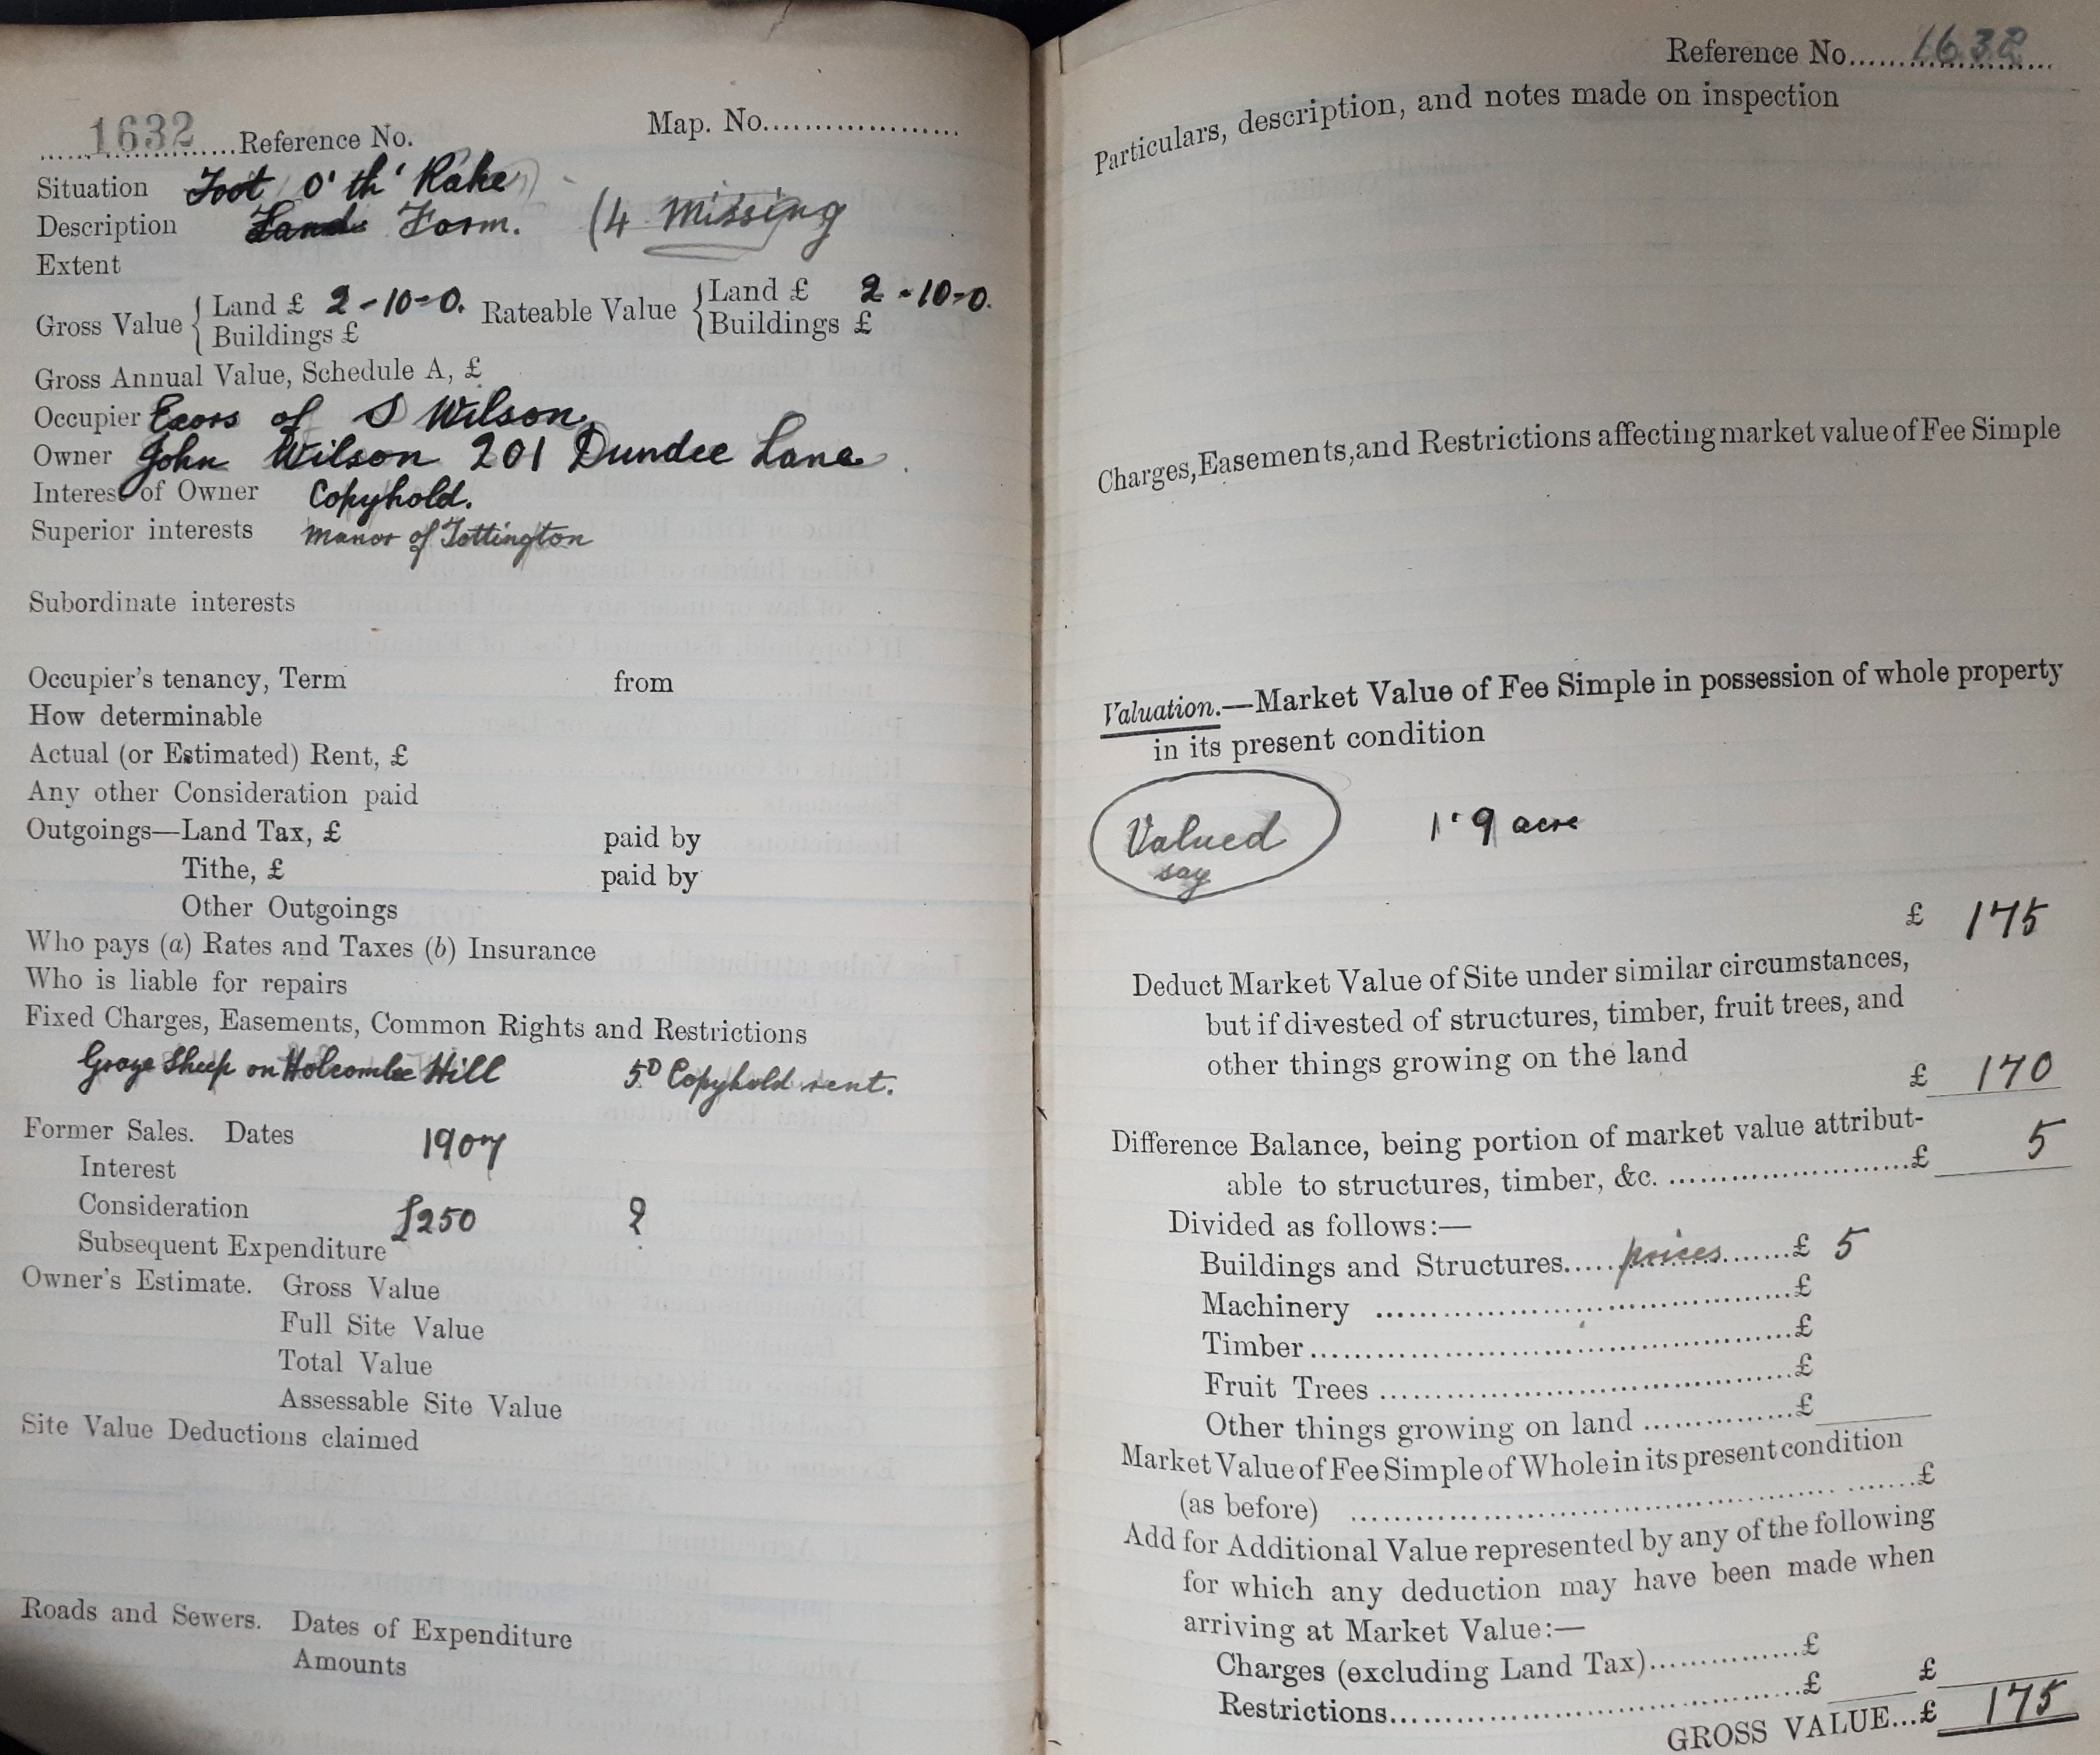 1632 Reference No. Map. No....................
Situation Foot O' th' Rake
Description Land Farm. (4 Missing
Extent
Gross Value { Land £ 2-10-0. Rateable Value { Land £ 2-10-0.
Buildings £ Buildings £
Gross Annual Value, Schedule A, £
Occupier Exors of S Wilson,
Owner John Wilson 201 Dundee Lane
Interest of Owner Copyhold.
Superior interests Manor of Tottington
Subordinate interests
Occupier's tenancy, Term from
How determinable
Actual (or Estimated) Rent, £
Any other Consideration paid
Outgoings—Land Tax, £ paid by
Tithe, £ paid by
Other Outgoings
Who pays (a) Rates and Taxes (b) Insurance
Who is liable for repairs
Fixed Charges, Easements, Common Rights and Restrictions
Graze Sheep on Holcombe Hill 5D Copyhold rent.
Former Sales. Dates 1907
Interest
Consideration £250 ?
Subsequent Expenditure
Owner's Estimate. Gross Value
Full Site Value
Total Value
Assessable Site Value
Site Value Deductions claimed
Roads and Sewers. Dates of Expenditure
Amounts
Reference No. 1632
Particulars, description, and notes made on inspection
Charges, Easements, and Restrictions affecting market value of Fee Simple
Valuation.—Market Value of Fee Simple in possession of whole property
in its present condition
Valued 1·9 acre
say
£ 175
Deduct Market Value of Site under similar circumstances,
but if divested of structures, timber, fruit trees, and
other things growing on the land
£ 170
Difference Balance, being portion of market value attribut-
able to structures, timber, &c. ........................£ 5
Divided as follows:—
Buildings and Structures..............£ 5
Machinery ........................................£
Timber................................................£
Fruit Trees ........................................£
Other things growing on land ..............£
Market Value of Fee Simple of Whole in its present condition
(as before) ........................................£
Add for Additional Value represented by any of the following
for which any deduction may have been made when
arriving at Market Value:—
Charges (excluding Land Tax)..............£
Restrictions........................................£ £
GROSS VALUE...£ 175